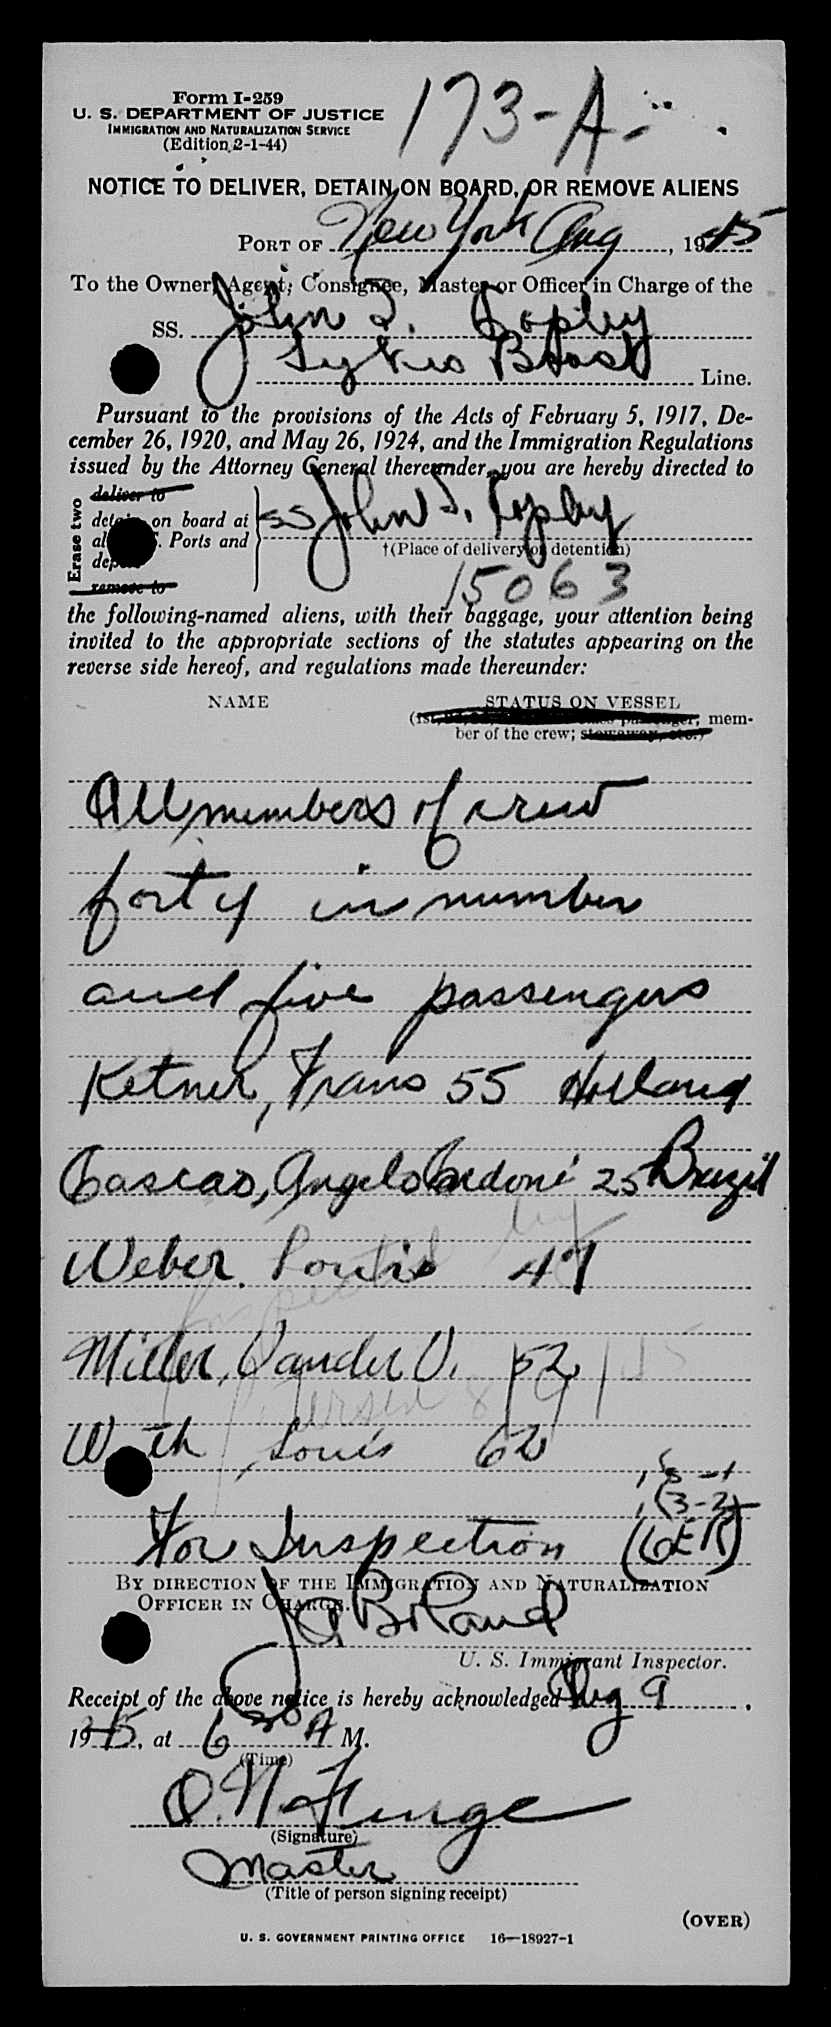 Form I-259
U. S. DEPARTMENT OF JUSTICE
IMMIGRATION AND NATURALIZATION SERVICE
(Edition 2-1-44)
173-A-
NOTICE TO DELIVER, DETAIN ON BOARD, OR REMOVE ALIENS
PORT OF New York Aug, 1945
To the Owner, Agent, Consignee, Master or Officer in Charge of the
SS. John S. Copley
Line.
Pursuant to the provisions of the Acts of February 5, 1917, De-
cember 26, 1920, and May 26, 1924, and the Immigration Regulations
issued by the Attorney General thereunder, you are hereby directed to
Erase two
deliver to
detain on board at
Ports and
remove to
SS John S. Copley
†(Place of delivery or detention)
15063
the following-named aliens, with their baggage, your attention being
invited to the appropriate sections of the statutes appearing on the
reverse side hereof, and regulations made thereunder:
NAME STATUS ON VESSEL
passenger; mem-
ber of the crew; stowaway, etc.)
All members of crew
forty in number
and five passengers
Ketner, Frans 55 Holland
Angelo 25 Brazil
Weber, Louis 47
Miller, Vander V. 52
Louis 62
For Inspection
BY DIRECTION OF THE IMMIGRATION AND NATURALIZATION
OFFICER IN CHARGE.
J A Boland
U. S. Immigrant Inspector.
Receipt of the above notice is hereby acknowledged Aug 9,
1945, at 6 30 A M.
(Time)
(Signature)
Master
(Title of person signing receipt)
(OVER)
U. S. GOVERNMENT PRINTING OFFICE 16—18927-1